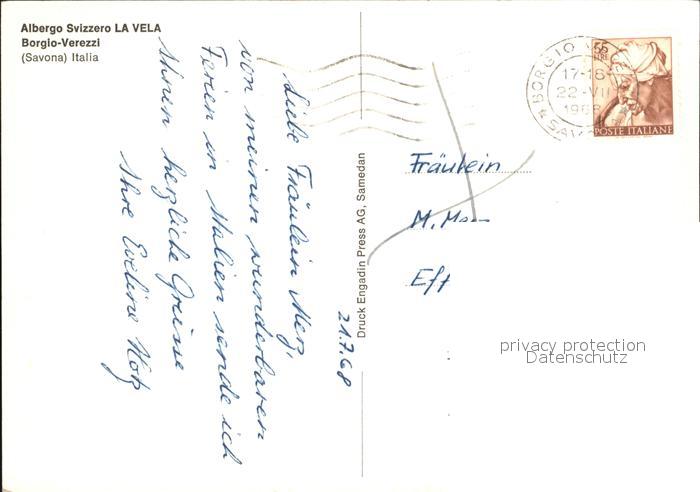 Albergo Svizzero LA VELA
Borgio-Verezzi
(Savona) Italia
21.7.68
Liebe Fräulein Merz,
von meinen wunderbaren
Ferien in Italien sende ich
Ihnen herzliche Grüsse
Ihre Eveline Hotz
Druck Engadin Press AG, Samedan
BORGIO
17-18
22-VII
1968
55
LIRE
POSTE ITALIANE
Fräulein
M.
Eff
privacy protection
Datenschutz